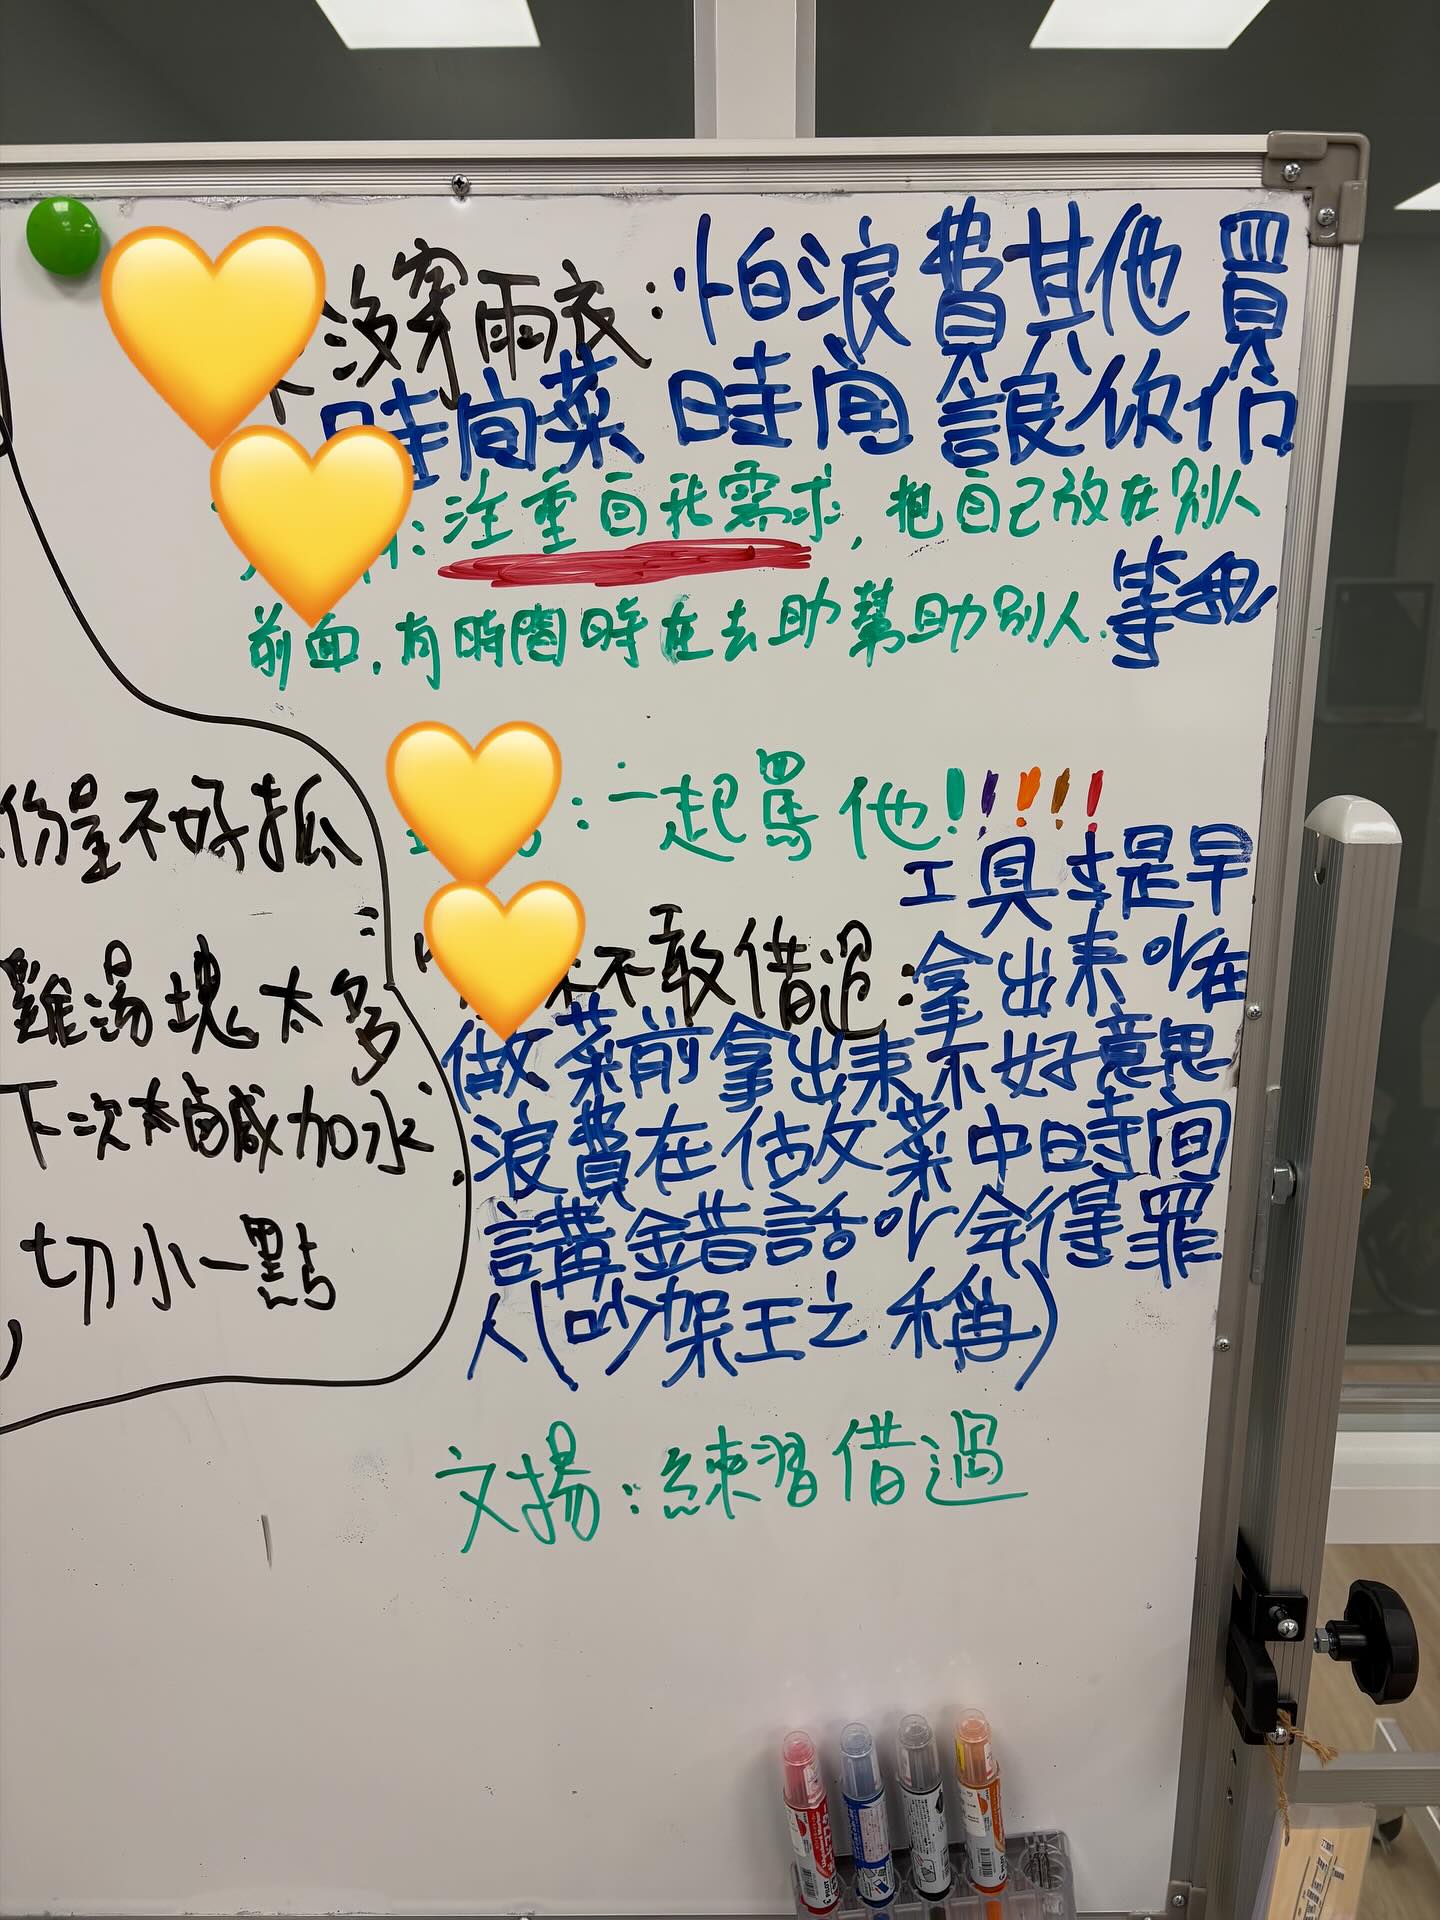 沒穿雨衣：怕浪費其他買
時間菜 時間 讓你们
：注重自我需求，把自己放在別人
前面，有時間時在去助幫助別人. 等我
：一起罵他!!!!!
工具才是早
不敢借過：拿出來or在
做菜前拿出來不好意思
浪費在做菜中時間
講錯話or会得罪
人(吵架王之稱)
文揚：練習借過
份量不好抓
雞湯塊太多
下次太鹹加水.
，切小一點